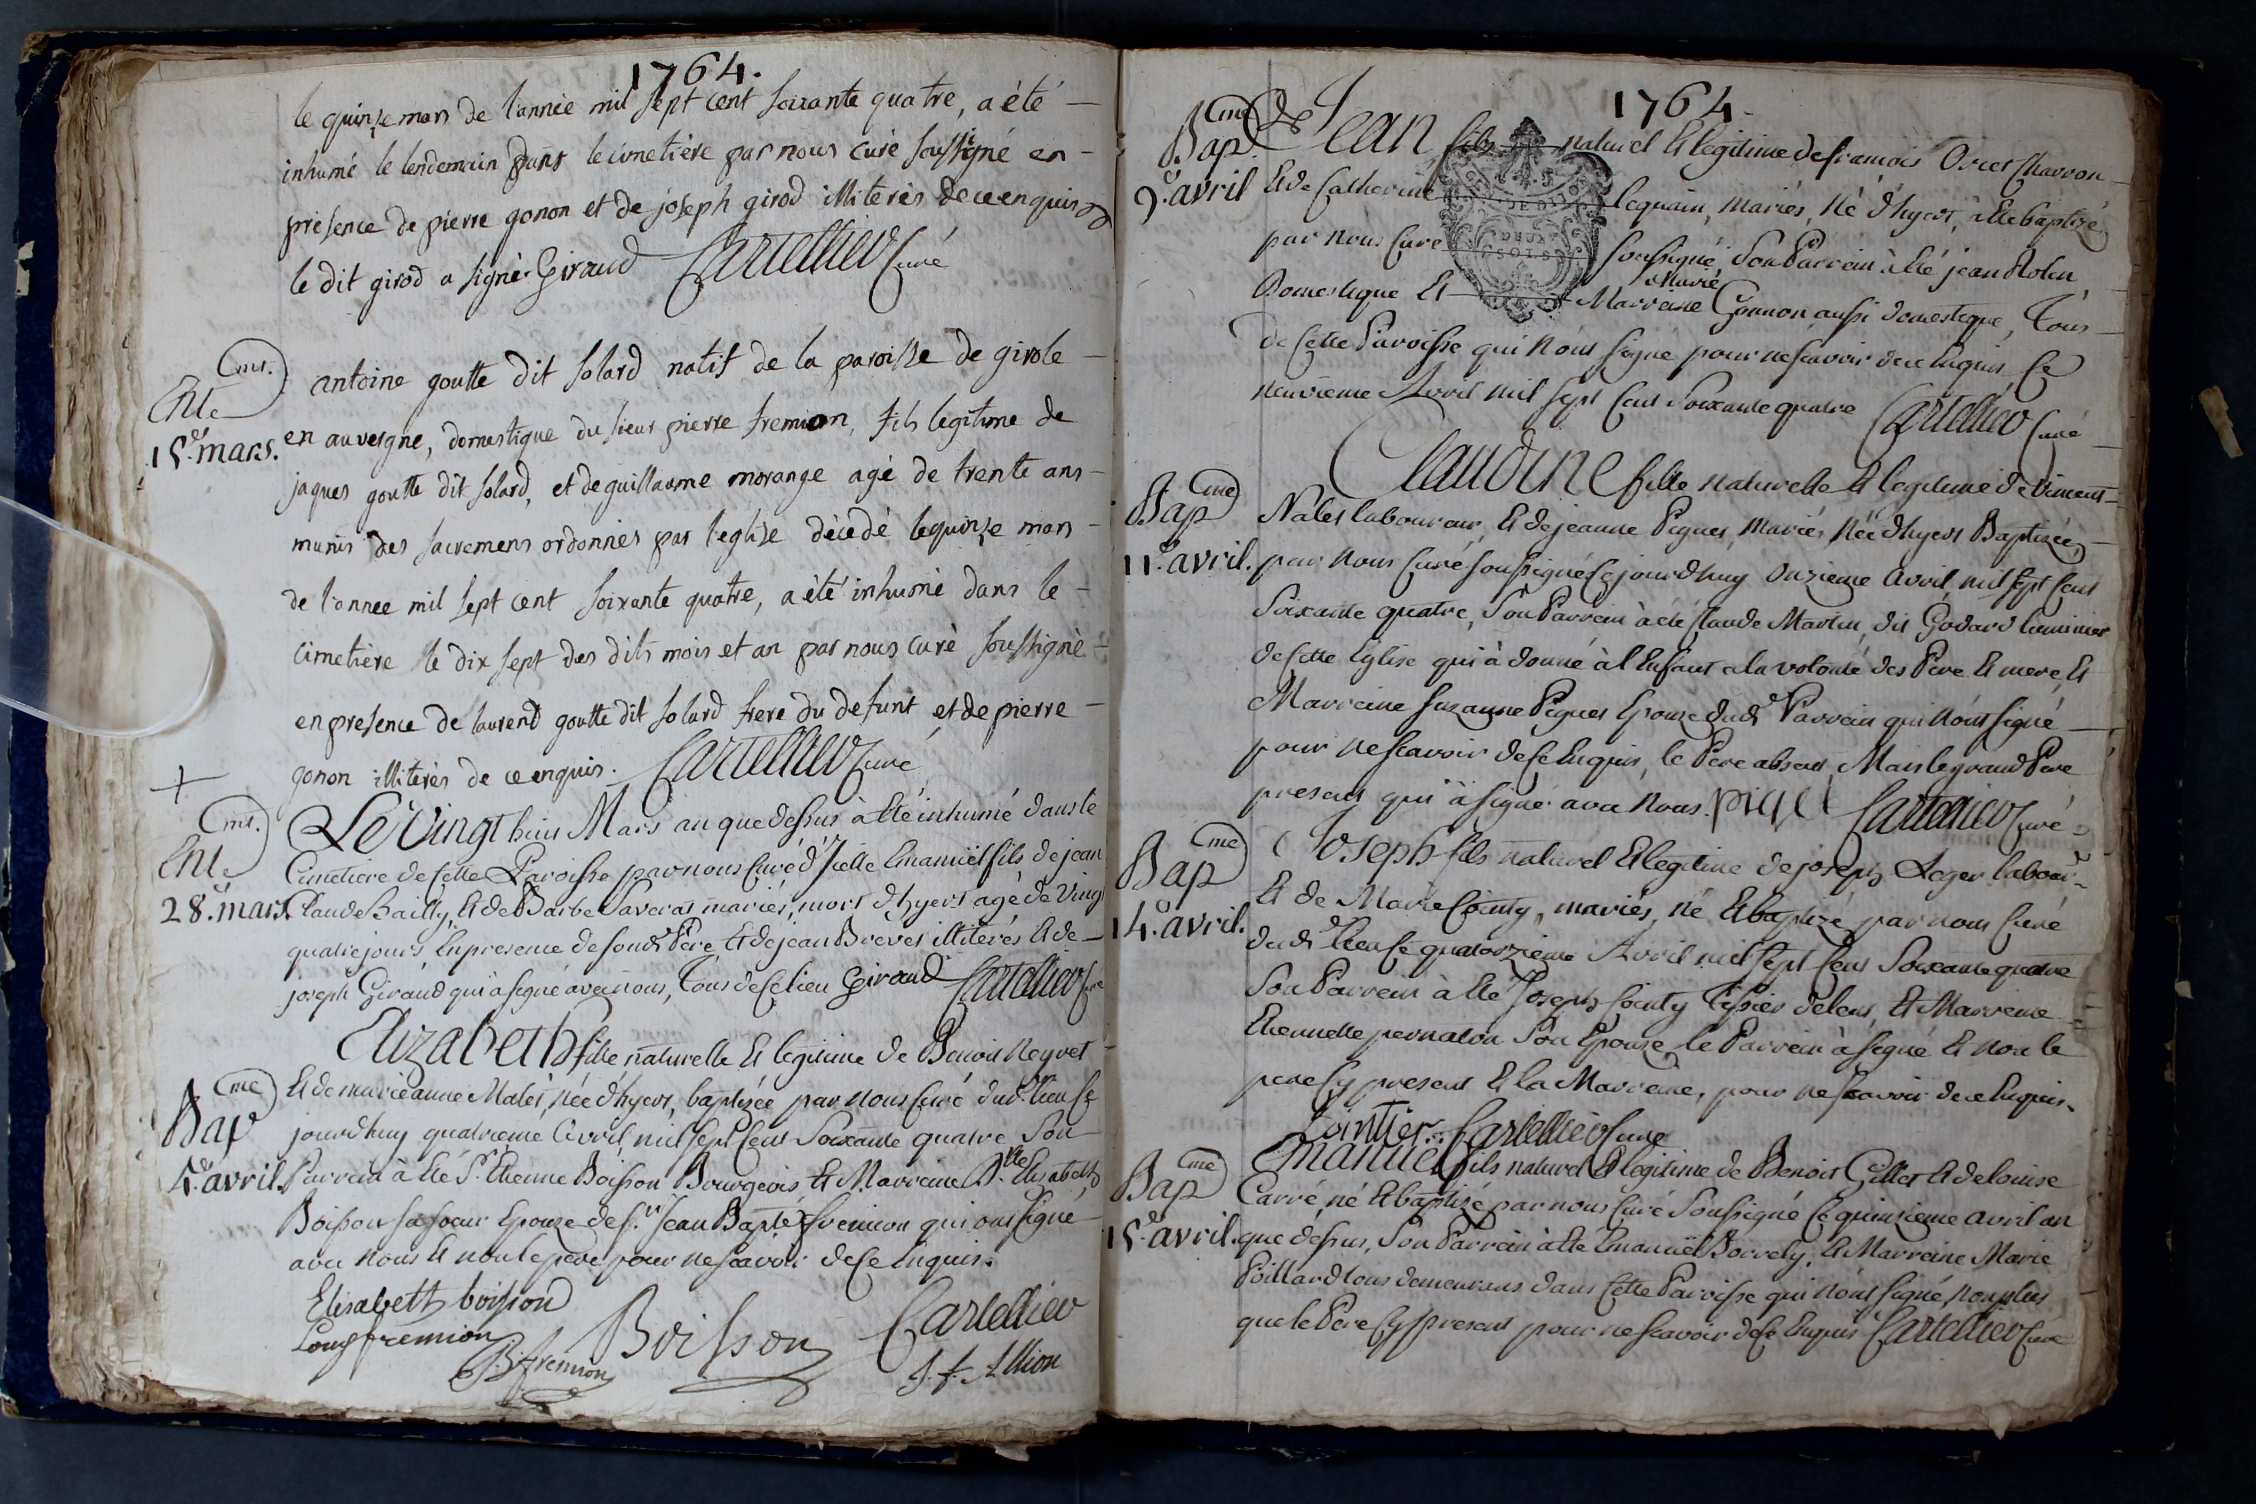 1764.
le quinze mars de l'année mil sept cent soixante quatre, a été
inhumé le lendemain dans le cimetière par nous curé soussigné en
presence de pierre gonon et de joseph girod illiterés de ce enquis
le dit girod a signé. Giraud Cartellier Curé
Ent.ems.
15.e mars.
antoine goutte dit solard natif de la paroisse de girole
en auvergne, domestique du sieur pierre fremion, fils legitime de
jaques goutte dit solard, et de guillaume morange agé de trente ans
munis des sacremens ordonnés par l'eglise décédé le quinze mars
de l'annee mil sept cent soixante quatre, a été inhumé dans le
cimetière le dix sept des dits mois et an par nous curé soussigné
en presence de laurent goutte dit solard frere du defunt, et de pierre
gonon illiterés de ce enquis. Cartellier Curé
+
Ent.ems.
28.e mars
Le Vingt huit Mars an que dessus à été inhumé dans le
Cimetiere de Cette Paroisse par nous Curé d'Icelle Emanuël fils de jean
Claude Bailly, et de Barbe Saveras mariés, mort d'hyers agé de Vingt
quatre jours, En presence de son d.t Père et de jean Brevet illitérés et de
joseph Giraud qui à signé avec nous, Tous de Ce lieu Giraud Cartellier Curé
Bap.eme
4.e avril.
Elizabeth fille naturelle et legitime de Benoit Neyret
Et de marie anne Malés, née d'hyers, baptizée par nous Curé dud.t lieu Ce
jourdhuy quatrieme Avril, mil sept Cent Soixante quatre Son
Parrain à été S.r Etienne Boisson Bourgeois et Marreine D.lle Elisabeth
Boisson sa soeur Epouze de s.r Jean Bapt.e fremion qui ont signé
avec nous et non le père pour ne scavoir de Ce Enquis.
Elisabeth boisson
Louis fremion
B. fremion Boisson Cartellier
J. f. Allion
1764.
Bap.eme
9.e avril
Jean fils naturel et legitime de francois Oriet Charron
Et de Catherine Lequain, mariés, Né d'hyers, à été baptizé
par nous Curé soussigné, Son Parrain à été jean Rolin
Domestique Et Marreine Marie Gonnon aussi domestique, Tous
de Cette Paroisse qui n'ont signé pour ne scavoir de ce Enquis Ce
neuvieme Avril mil sept Cent Soixante quatre Cartellier Curé
Bap.eme
11.e avril.
Claudine fille naturelle et legitime de Vincent
Nalet laboureur, et de jeanne Piques, mariés, Née d'hyers Baptizée
par nous Curé soussigné Ce jourdhuy Onzieme Avril, mil sept Cent
Soixante quatre, Son Parrain à été Claude Martin, dit Godard
de Cette Eglise qui à donné à l'Enfant a la volonté des Père et mere, et
Marreine Suzanne Piques Epouze dud.t Parrain qui n'ont signé
pour ne scavoir de Ce Enquis, le Pere absent, Mais le grand Pere
present qui à signé avec nous. piqet Cartellier Curé
Bap.eme
14.e avril.
Joseph fils naturel et legitime de joseph Leger labour
Et de Marie Cointy, mariés, Né et baptizé par nous Curé
dud.t lieu Ce quatorzieme Avril mil sept Cent Soixante quatre
Son Parrain à été Joseph Cointy Tissier de lens, et Marreine
Etiennette pernaton Son Epouze, le Parrain à signé et non le
pere Cy present et la Marreine, pour ne Scavoir de ce Enquis.
Cointier Cartellier Curé
Bap.eme
15.e avril.
Emanuel fils naturel et legitime de Benoit Gillet et de louise
Carré, né et baptizé par nous Curé Soussigné Ce quinzieme avril an
que dessus, Son Parrain à été Emanuël Borrely, et Marreine Marie
Poillard tous demeurans dans Cette Paroisse qui n'ont signé, non plus
que le Pere Cy present pour ne scavoir de Ce Enquis Cartellier Curé